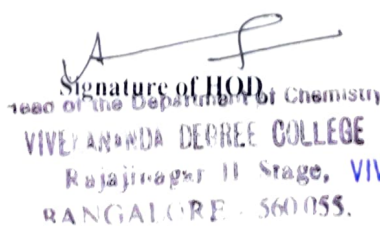 Signature of HOD
Head of the Department of Chemistry
VIVEKANANDA DEGREE COLLEGE
Rajajinagar II Stage, VIV
BANGALORE - 560 055.